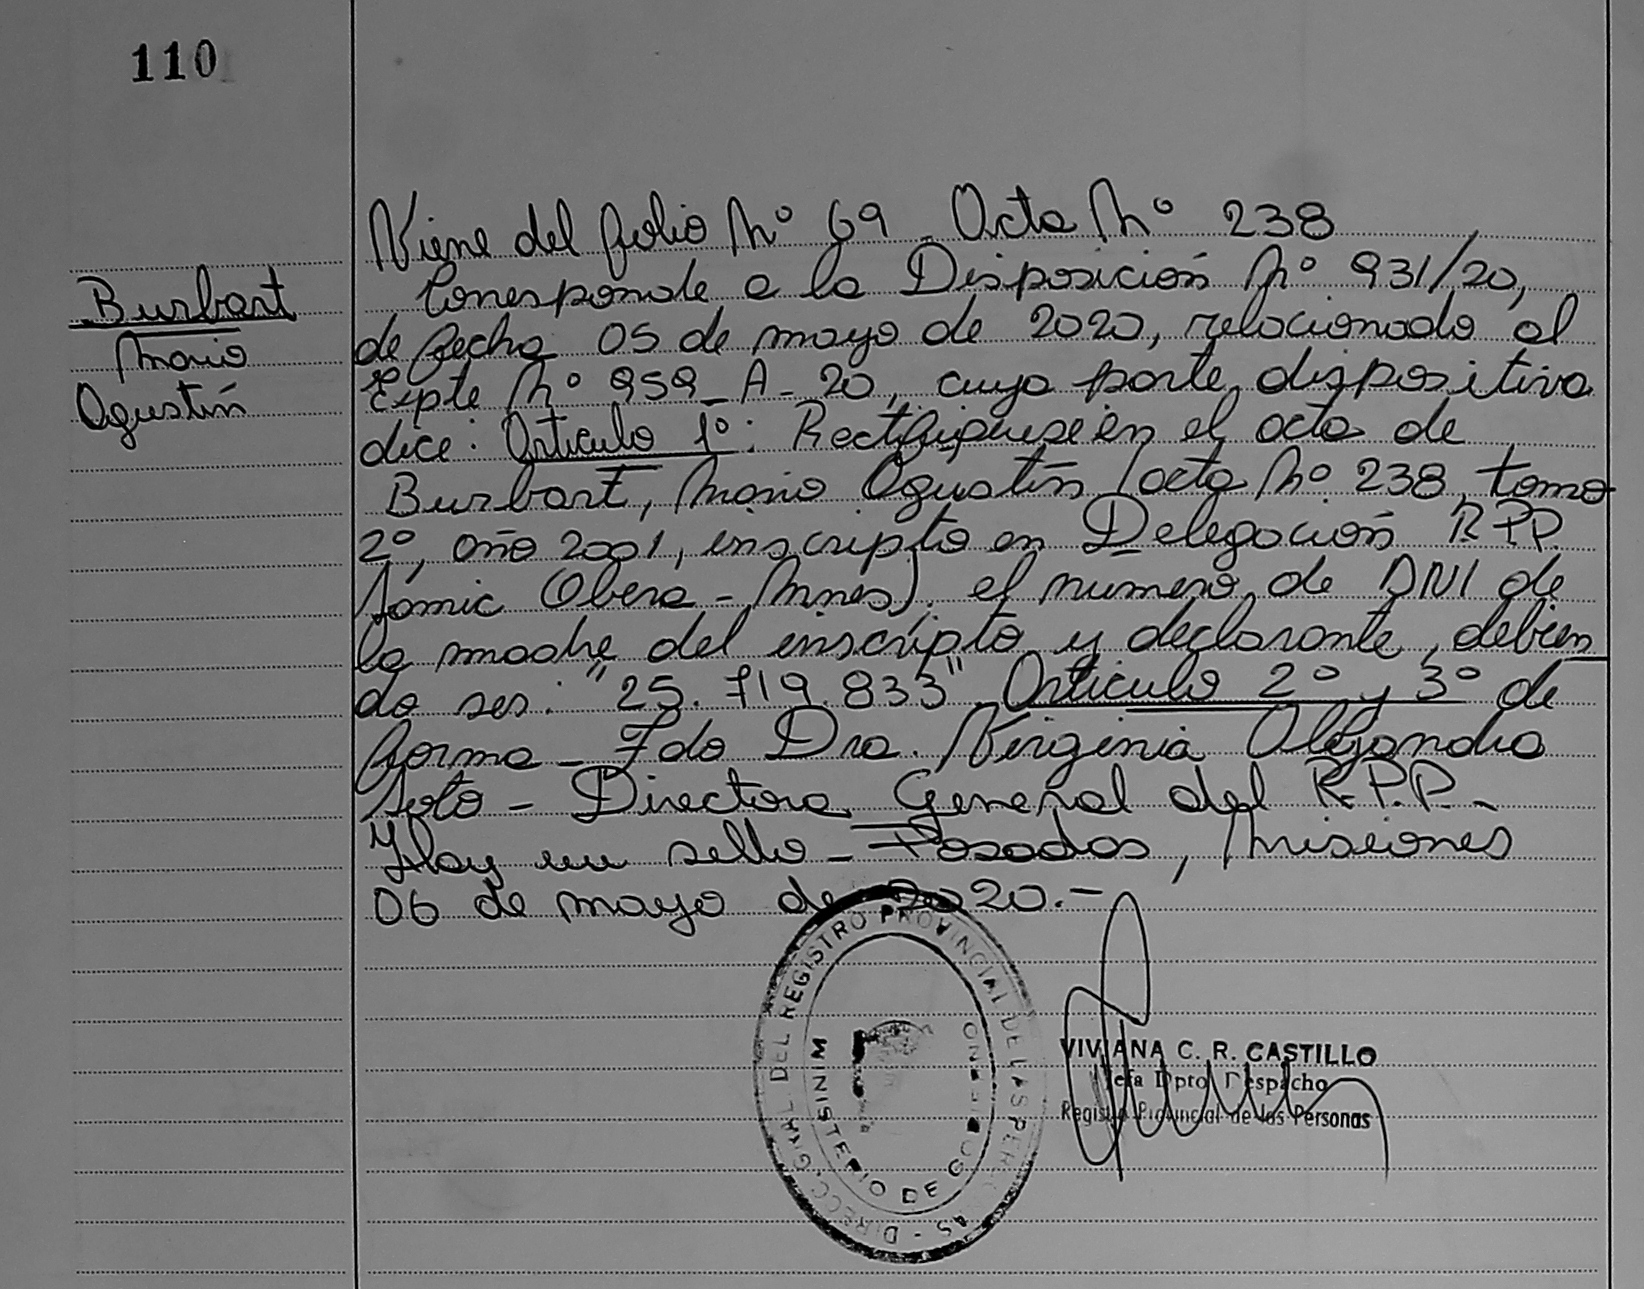 110
Burbart
Mario
Agustín
Viene del folio Nº 69 - Acta Nº 238
Corresponde a la Disposición Nº 931/20,
de fecha 05 de mayo de 2020, relacionado al
Expte Nº 959_A_20, cuya parte dispositiva
dice: Artículo 1º: Rectifíquese en el acta de
Burbart, Mario Agustín (acta Nº 238, tomo
2º, año 2001, inscripto en Delegación RPP
Samic Oberá - Mnes). el número de DNI de
la madre del inscripto y declarante, debien
do ser: "25.719.833" Artículo 2º y 3º de
forma - Fdo Dra. Virginia Alejandra
Soto - Directora General del R.P.P. -
Hay un sello - Posadas, Misiones
06 de mayo de 2020.-
DIRECC. GRAL. DEL REGISTRO PROVINCIAL DE LAS PERSONAS -
MINISTERIO DE GOBIERNO
VIVIANA C. R. CASTILLO
Jefa Dpto Despacho
Registro Provincial de las Personas